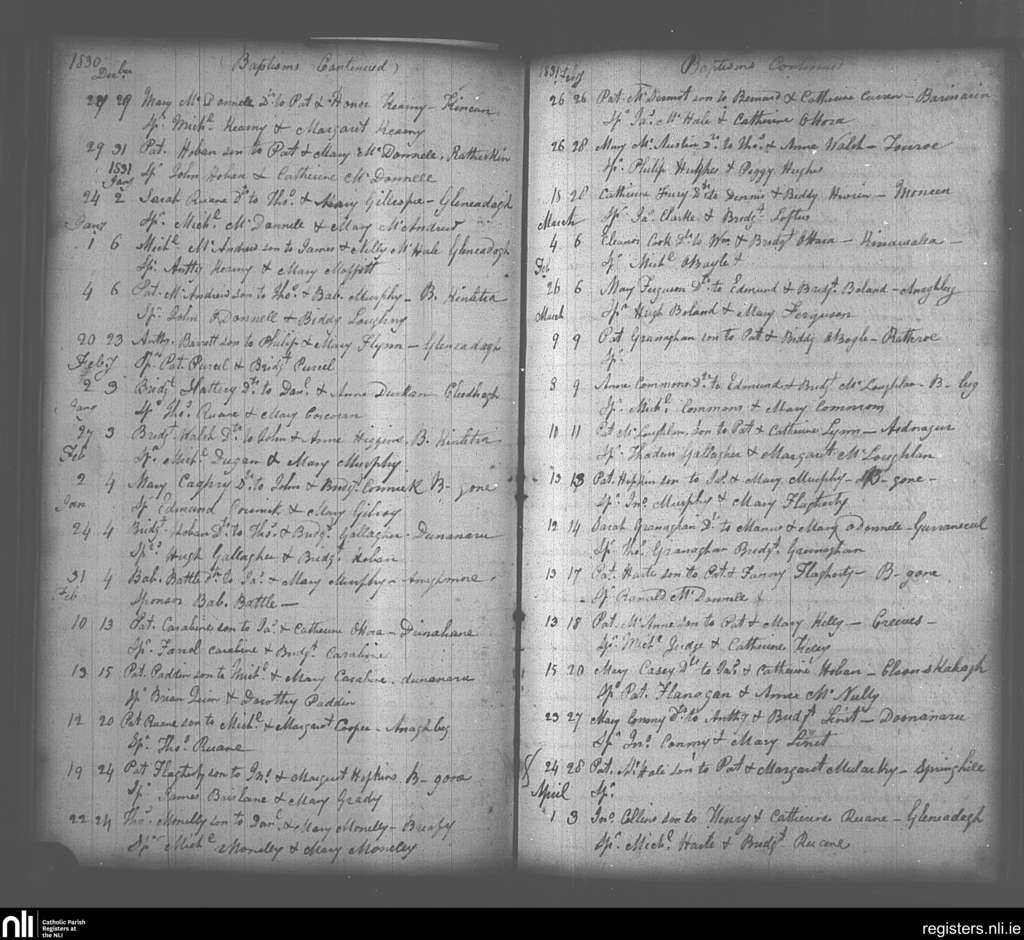 1830 (Baptisms Continued)
Decbr
29 Mary McDonnell Dr. to Pat & Honor Keamy - Kincun
Sp. Michl. Keamy & Margaret Keamy
29 31 Pat. Hoban son to Pat & Mary McDonnele, Ratheskin
1831
Jany Sp. John Hoban & Catherine McDonnele
24 2 Sarah Ruane Dr. to Thos. & Mary Gillespie - Gleneadagh
Sp. Michl. McDonnele & Mary McAndrew
Jany
1 6 Michl. McAndrew son to James & Nelly McHale Gleneadogh
Sp. Antty Keamy & Mary Moffett
4 6 Pat. McAndrew son to Thos. & Bab. Murphy - B.
Sp. John ODonnell & Biddy Loughiny
20 23 Anthy. Barrett son to Philip & Mary Flynn - Gleneadagh
Feby Sp. Pat. Purcel & Bridgt. Purcel
2 3 Bridgt. Slattery Dr. to Danl. & Anne Durkan
Jany Sp. Thos. Ruane & Mary Corcoran
27 3 Bridgt. Walsh Dr. to John & Anne Higgins. B.
Feb Sp. Michl. Dugan & Mary Murphy
2 4 Mary Caghry Dr. to John & Bridgt. Cormick B- gone
Jan Sp. Edmund Cormick & Mary Gilroy
24 4 Bridgt. Hoban Dr. to Thos. & Bridgt. Gallagher - Dunanaru
Sp. Hugh Gallagher & Bridgt. Hoban
31 4 Bab. Battle Dr. to Ja. & Mary Murphy - Anaghmore
Feb Sponsor Bab. Battle -
10 13 Pat. Carabine son to Ja. & Catherine OHora - Dunahane
Sp. Carabine & Bridgt. Carabine
13 15 Pat. Paddin son to Michl. & Mary Carabine. dunanaru
Sp. Brian Quin & Dorothy Paddin
12 20 Pat Ruane son to Michl. & Margaret Cooper - Anaghbeg
Sp. Thos. Ruane
19 24 Pat Flagherty son to Jno. & Margaret Hopkins B- gora
Sp. James Brislane & Mary Grady
22 24 Thos. Monelly son to Danl. & Mary Monelly - Breafy
Sp. Michl. Monelly & Mary Moneley
1831 Feby Baptisms Continued
26 26 Pat. McDermot son to Bernard & Catherine Curran - Barinarin
Sp. Ja. McHale & Catherine OHora
26 28 Mary Mc Dr. to Thos. & Anne Walsh - Touroe
Sp. Philip Hughes & Peggy Hughes
18 28 Catherine Fury Dr. to Dennis & Biddy - Moneen
March Sp. Ja. Clarke & Bridgt. Loftus
4 6 Eleanor Cook Dr. to Wm. & Bridgt. OHara -
Feb Sp. Michl. OBoyle &
26 6 Mary Ferguson Dr. to Edmund & Bridgt. Boland - Anaghbeg
March Sp. Hugh Boland & Mary Ferguson
9 9 Pat Granaghan son to Pat & Biddy OBoyle - Rathroe
Sp.
8 9 Anne Commons Dr. to Edmund & Bridgt. McLoughlan - B- beg
Sp. Michl. Commons & Mary Commons
10 11 Pat McLoughlan son to Pat & Catherine Lynn - Ardnagur
Sp. Thadeus Gallagher & Margaret McLoughlan
13 13 Pat. Hopkin son to Ja. & Mary Murphy - B- gone -
Sp. Jno. Murphy & Mary Flagherty
12 14 Sarah Granaghan Dr. to Manus & Mary oDonnele -
Sp. Thos. Granaghan Bridgt. Granaghan
13 17 Pat. Harte son to Pat & Fanny Flagherty - B- gone
Sp. Ranald McDonnele &
13 18 Pat. McAnne son to Pat & Mary Kelly - Creeves -
Sp. Michl. Judge & Catherine Kelly
15 20 Mary Casey Dr. to Ja. & Catharine Hoban -
Sp. Pat. Flanagan & Anne McNully
23 27 Mary Conmy Dr. to Anthy & Bridgt. - Doonanaru
Sp. Jno. Conmy & Mary
24 28 Pat. McHale son to Pat & Margaret Mularky - Springhill
April Sp.
1 3 Jno. Collins son to Henry & Catherine Ruane - Gleneadagh
Sp. Michl. Harte & Bridgt. Ruane
nli
Catholic Parish
Registers at
the NLI
registers.nli.ie